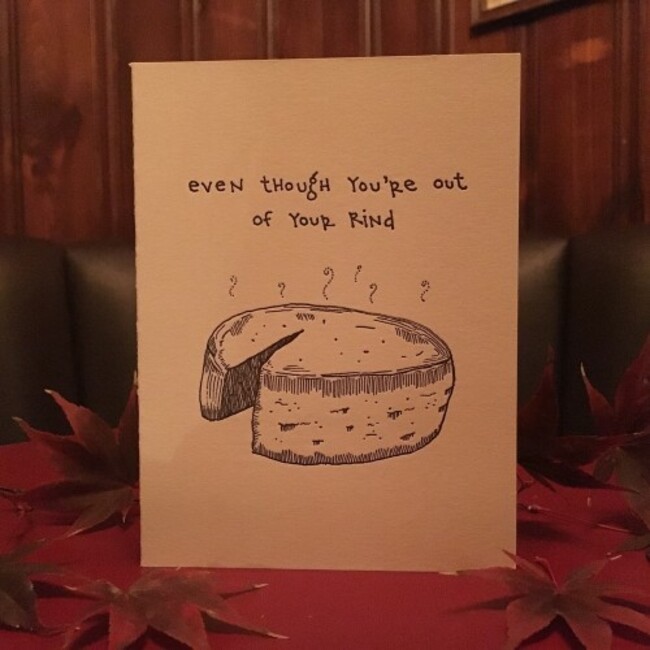 even though You're out
of Your Rind